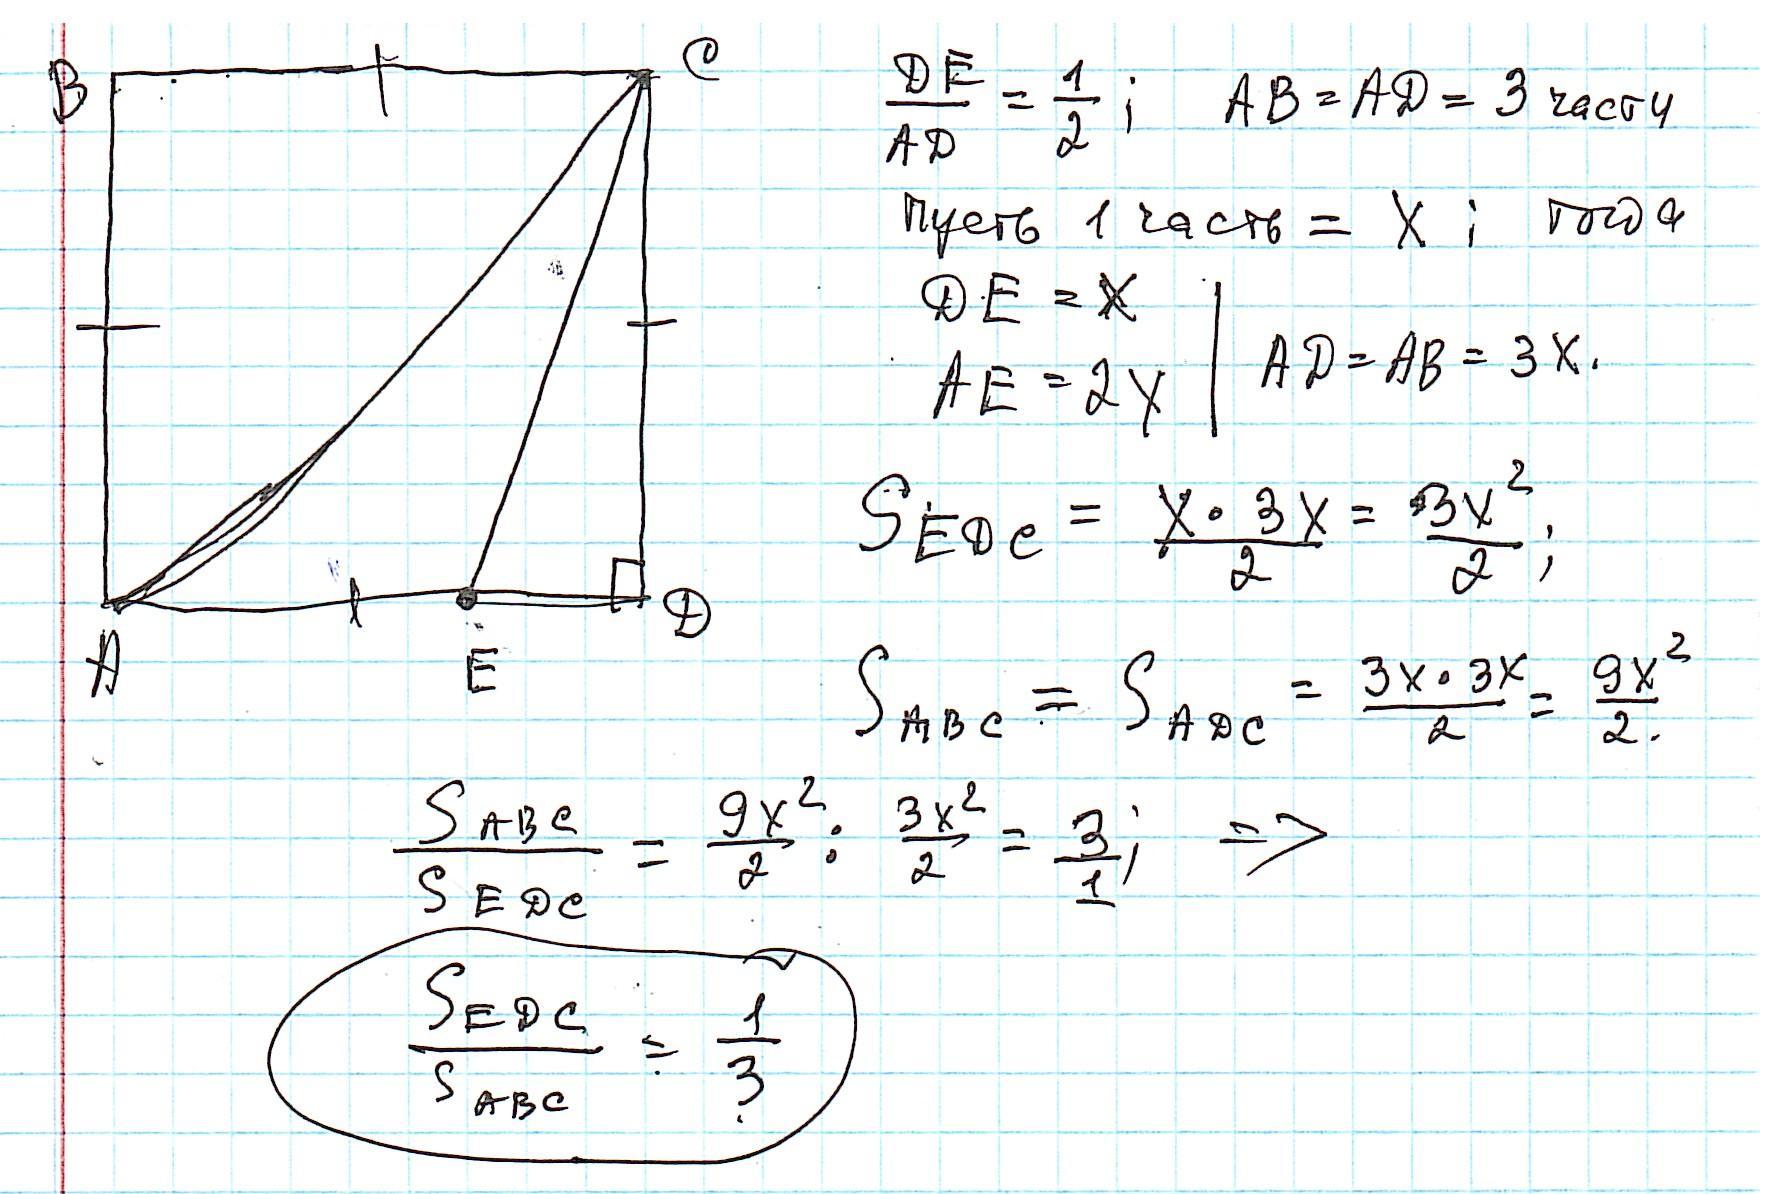 B C
A E D
DE/AD = 1/2; AB = AD = 3 части
пусть 1 часть = X; тогда
DE = X
AE = 2X | AD = AB = 3X.
S_EDC = X·3X/2 = 3X²/2;
S_ABC = S_ADC = 3X·3X/2 = 9X²/2.
S_ABC/S_EDC = 9X²/2 : 3X²/2 = 3/1; =>
S_EDC/S_ABC = 1/3